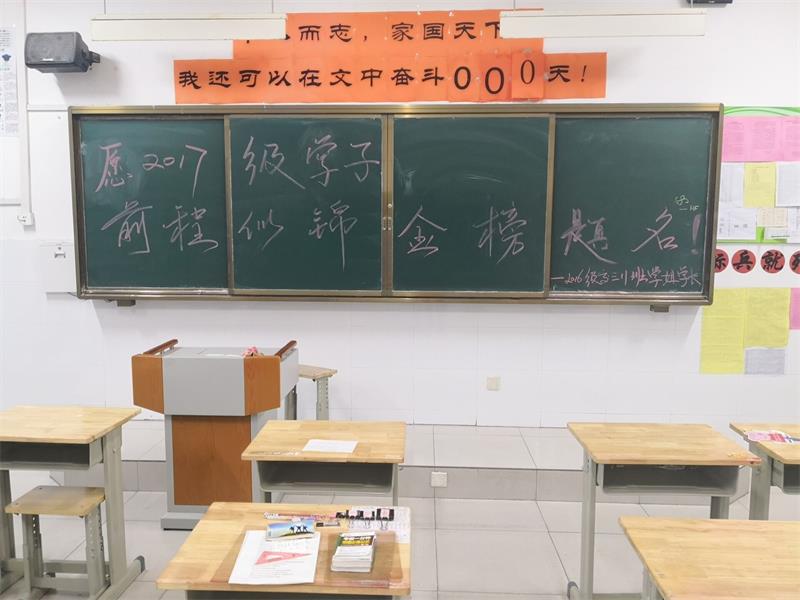 而志，家国天下
我还可以在文中奋斗000天！
愿2017级学子
前程似锦 金榜题名！
—2016级高三11班学姐学长
标兵就